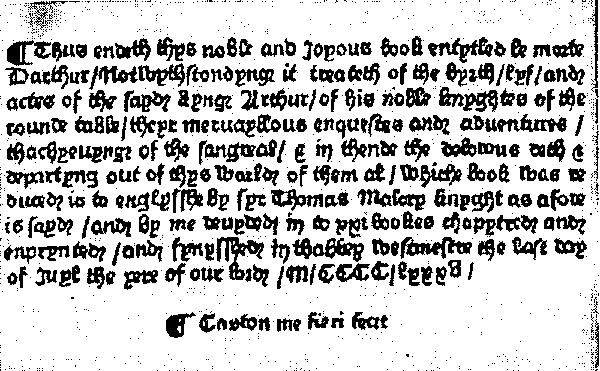 ¶Thus endeth thys noble and Joyous book entytled le morte
Darthur/Notwythstondyng it treateth of the byrth/lyf/and
actes of the sayd kyng Arthur/of his noble knyghtes of the
rounde table/theyr meruayllous enquestes and aduentures/
thachyeuyng of the sangreal/& in thende the dolorous deth &
departyng out of thys world of them al/whiche book was re
duced in to englysshe by syr Thomas Malory knyght as afore
is sayd/and by me deuyded in to xxi bookes chapytred and
enprynted/and fynysshed in thabbey westmestre the last day
of Juyl the yere of our lord/M/CCCC/lxxxV/
¶ Caxton me fieri fecit